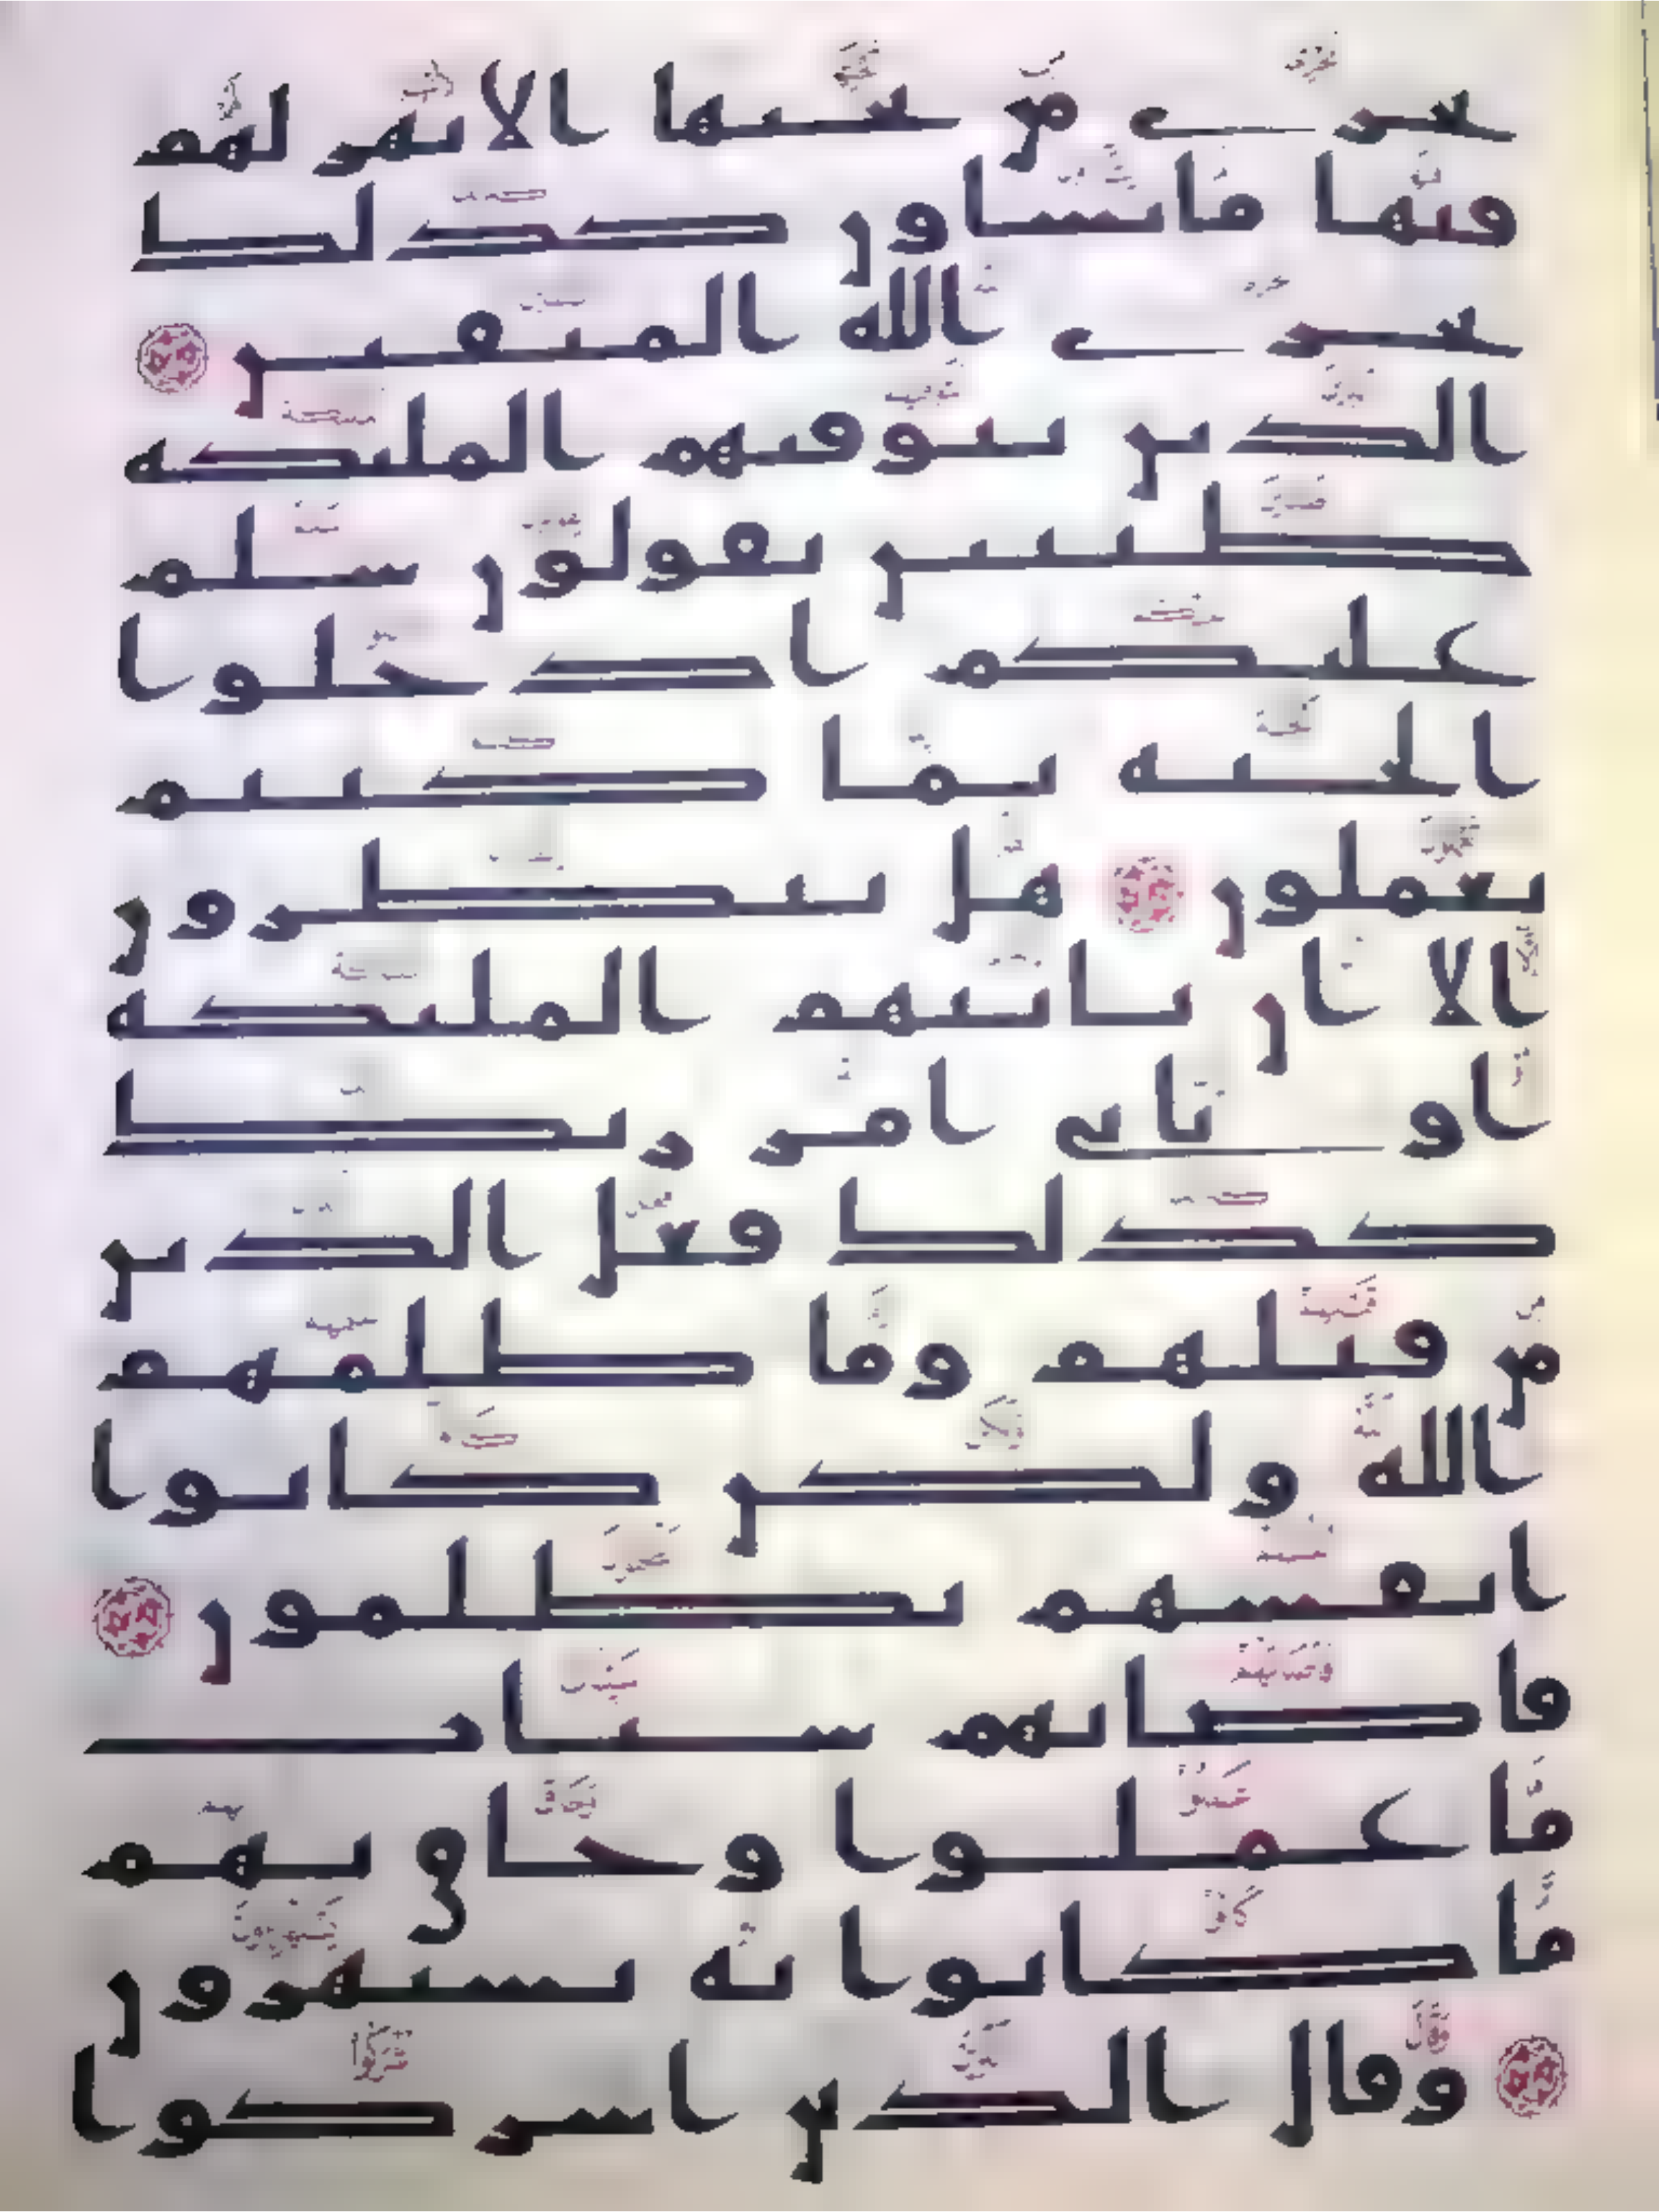 تجرى من تحتها الانهر لهم
فيها ما يشاون كذلك
يجزى الله المتقين
الذين تتوفيهم الملئكه
طيبين يقولون سلم
عليكم ادخلوا
الجنه بما كنتم
تعملون هل ينظرون
الا ان تاتيهم الملئكه
او ياتى امر ربك
كذلك فعل الذين
من قبلهم وما ظلمهم
الله ولكن كانوا
انفسهم يظلمون
فاصابهم سيات
ما عملوا وحاق بهم
ما كانوا به يستهزون
وقال الذين اشركوا